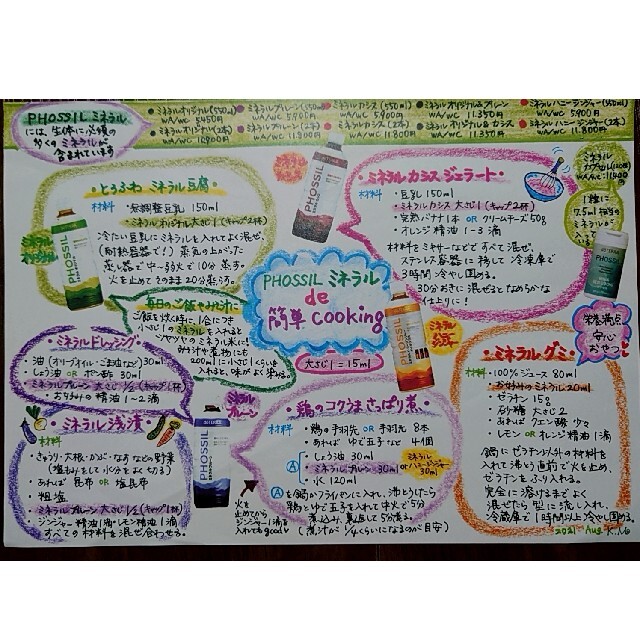 PHOSSIL ミネラル
には、生体に必須の
多くのミネラルが
含まれています
・ミネラルオリジナル(550ml)
W/A/WC 5,450円
・ミネラルプルーン(550ml)
W/A/WC 5,900円
・ミネラルカシス(550ml)
W/A/WC 5,900円
・ミネラルオリジナル&プルーン
W/A/WC 11,350円
・ミネラルハニージンジャー(550ml)
W/A/WC 5,900円
・ミネラルオリジナル(2本)
W/A/WC 10,900円
・ミネラルプルーン(2本)
W/A/WC 11,800円
・ミネラルカシス(2本)
W/A/WC 11,800円
・ミネラルオリジナル&カシス
W/A/WC 11,350円
・ミネラルハニージンジャー(2本)
W/A/WC 11,800円
・とうふわ ミネラル豆腐・
材料
・無調整豆乳 150ml
・ミネラルオリジナル大さじ1(キャップ2杯)
冷たい豆乳にミネラルを入れてよく混ぜ、
(耐熱容器で!)蒸気の上がった
蒸し器で中〜弱火で10分蒸す。
火を止めてそのまま20分蒸らす。
PHOSSIL
・ミネラルカシスジェラート・
材料
・豆乳 150ml
・ミネラルカシス 大さじ1(キャップ2杯)
・完熟バナナ1本 OR クリームチーズ50g
・オレンジ精油 1〜3滴
材料をミキサーなどですべて混ぜ、
ステンレス容器に移して冷凍庫で
3時間冷やし固める。
・30分おきに混ぜるとなめらかな
仕上りに!
ミネラル
カプセル(120粒)
W/A/WC 11,900円
1粒に
7.5ml相当の
ミネラルが
入ってる!
PHOSSIL
PHOSSIL ミネラル
de
簡単 cooking
大さじ1=15ml
毎日のご飯やおかずに
ご飯を炊く時に、1合につき
小さじ1のミネラルを入れると
ツヤツヤのミネラル米に!
みそ汁や煮物にも
200mlに小さじ1くらいを
入れると、味がよく染みる。
・ミネラルドレッシング・
・油(オリーブオイル・ごま油など)30ml
・しょう油 OR ポン酢 30ml
・ミネラルプルーン 大さじ1/2(キャップ1杯)
・お好みの精油 1〜2滴
PHOSSIL
栄養満点
安心
おやつ
・ミネラルグミ・
材料
・100%ジュース 80ml
・お好みのミネラル20ml
・ゼラチン 15g
・砂糖 大さじ2
・あれば クエン酸 少々
・レモン OR オレンジ精油 1滴
鍋にゼラチン以外の材料を
入れて沸とう直前で火を止め、
ゼラチンをふり入れる。
完全に溶けるまでよく
混ぜたら型に流し入れ、
冷蔵庫で1時間以上冷やし固める。
2021 Aug
・ミネラル浅漬・
材料
・きゅうり・大根・かぶ・なすなどの野菜
(塩もみをして水分をよく切る)
・あれば 昆布 OR 塩昆布
・粗塩
・ミネラルプルーン大さじ1/2(キャップ1杯)
・ジンジャー精油1滴・レモン精油1滴
すべての材料を混ぜ合わせる。
ミネラル
プルーン
PHOSSIL
火を
止めてから
ジンジャー1滴を
入れてもgood
・鶏のコクうまさっぱり煮・
材料
・鶏の手羽先 OR 手羽元 8本
・あれば ゆで玉子など 4個
Ⓐ
・しょう油 30ml
・ミネラルプルーン 30ml
OR ハニージンジャー
30ml
・水 120ml
Ⓐを鍋かフライパンに入れ、沸とうしたら
鶏とゆで玉子を入れて中火で5分
煮込み、裏返して5分煮る。
(煮汁が1/4くらいになるのが目安)